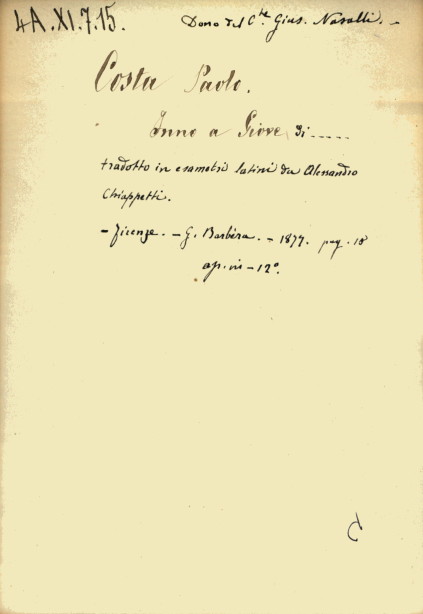 4A.XI.7.15.
Dono del C.te Gius. Nasalli. -
Costa Paolo.
Inno a Giove di .....
tradotto in esametri latini da Alessandro
Chiappetti.
- Firenze. - G. Barbèra. - 1877. pag. 18
op. in - 12º.